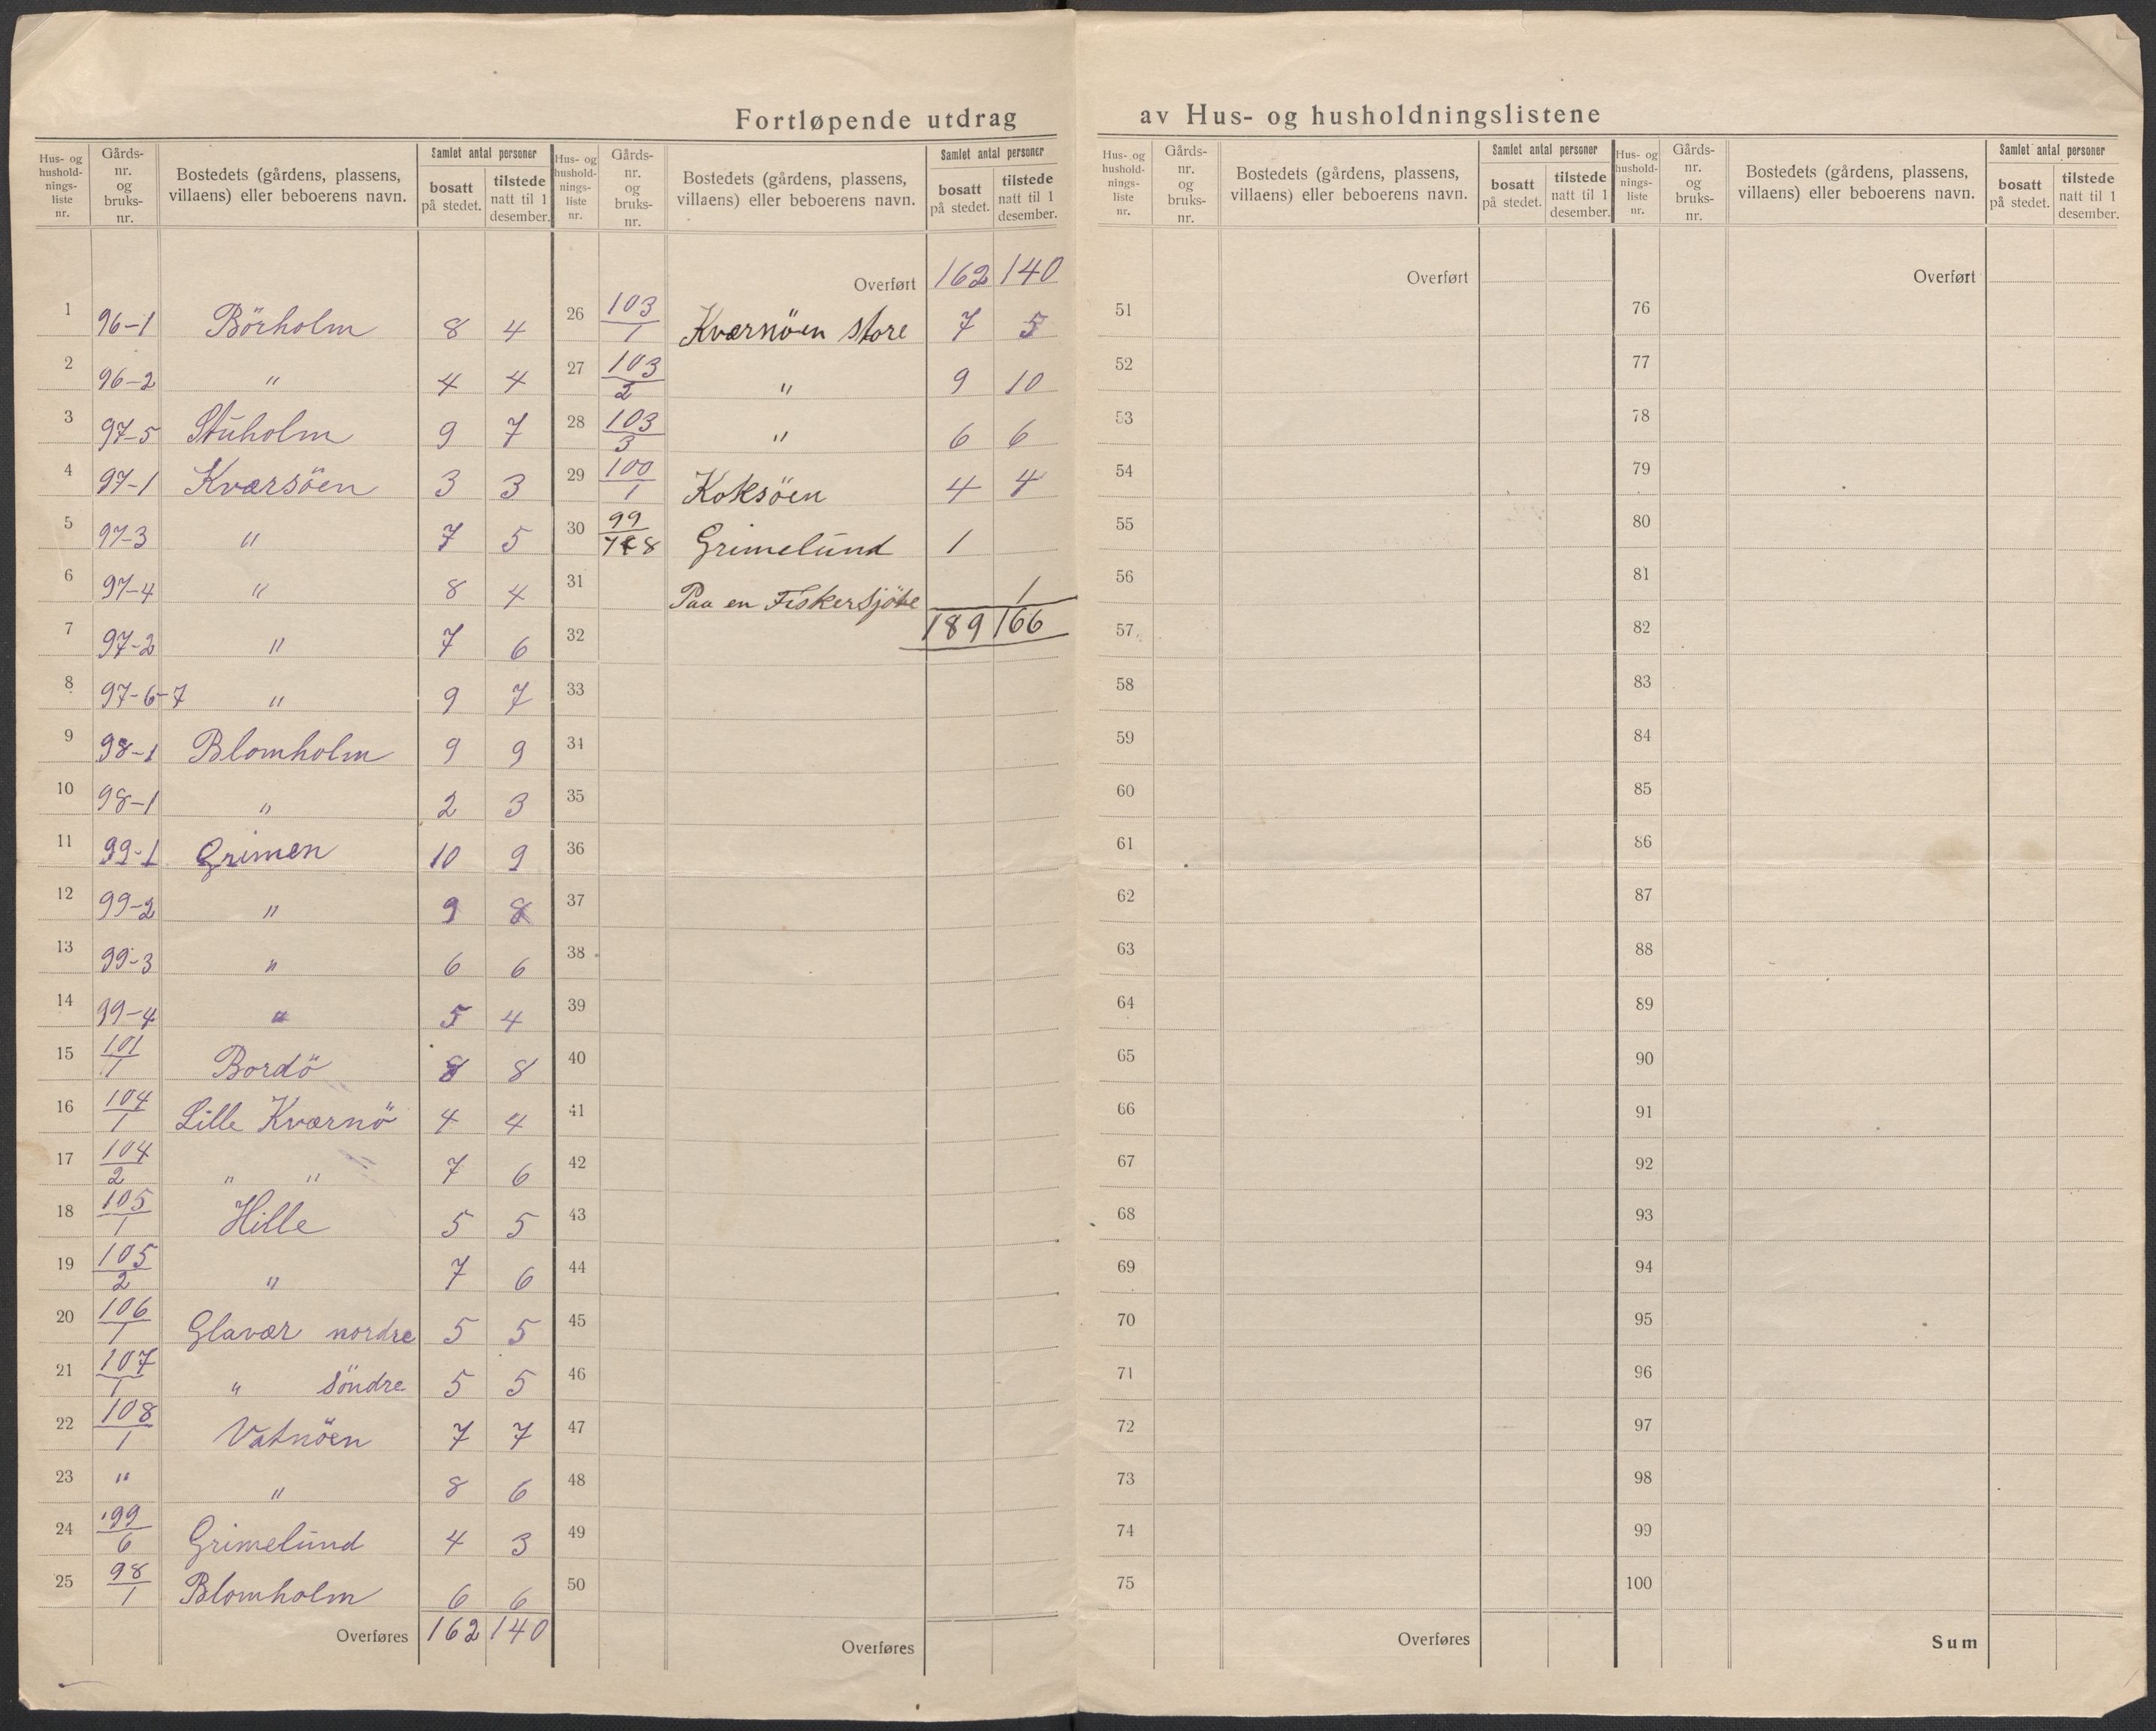 Fortløpende utdrag av Hus- og husholdningslistene
Hus- og husholdningsliste nr. Gårdsnr. og bruksnr. Bostedets (gårdens, plassens, villaens) eller beboerens navn. Samlet antal personer bosatt på stedet. tilstede natt til 1 desember.
1 96-1 Börholm 8 4
2 96-2 " 4 4
3 97-5 Stuholm 9 7
4 97-1 Kværsöen 3 3
5 97-3 " 7 5
6 97-4 " 8 4
7 97-2 " 7 6
8 97-6-7 " 9 7
9 98-1 Blomholm 9 9
10 98-1 " 2 3
11 99-1 Grimen 10 9
12 99-2 " 9 8
13 99-3 " 6 6
14 99-4 " 5 4
15 101/1 Bordö 8 8
16 104/1 Lille Kværnö 4 4
17 104/2 " " 7 6
18 105/1 Hille 5 5
19 105/2 " 7 6
20 106/1 Glavær nordre 5 5
21 107/1 " söndre 5 5
22 108/1 Vatnöen 7 7
23 " " 8 6
24 99/6 Grimelund 4 3
25 98/1 Blomholm 6 6
Overføres 162 140
Hus- og husholdningsliste nr. Gårdsnr. og bruksnr. Bostedets (gårdens, plassens, villaens) eller beboerens navn. Samlet antal personer bosatt på stedet. tilstede natt til 1 desember.
Overført 162 140
26 103/1 Kværnöen store 7 5
27 103/2 " 9 10
28 103/3 " 6 6
29 100/1 Koksöen 4 4
30 99 Grimelund 1
31 Paa en Fiskersjöte 1
32 189 166
33
34
35
36
37
38
39
40
41
42
43
44
45
46
47
48
49
50
Overføres
Hus- og husholdningsliste nr. Gårdsnr. og bruksnr. Bostedets (gårdens, plassens, villaens) eller beboerens navn. Samlet antal personer bosatt på stedet. tilstede natt til 1 desember.
Overført
51
52
53
54
55
56
57
58
59
60
61
62
63
64
65
66
67
68
69
70
71
72
73
74
75
Overføres
Hus- og husholdningsliste nr. Gårdsnr. og bruksnr. Bostedets (gårdens, plassens, villaens) eller beboerens navn. Samlet antal personer bosatt på stedet. tilstede natt til 1 desember.
Overført
76
77
78
79
80
81
82
83
84
85
86
87
88
89
90
91
92
93
94
95
96
97
98
99
100
Sum